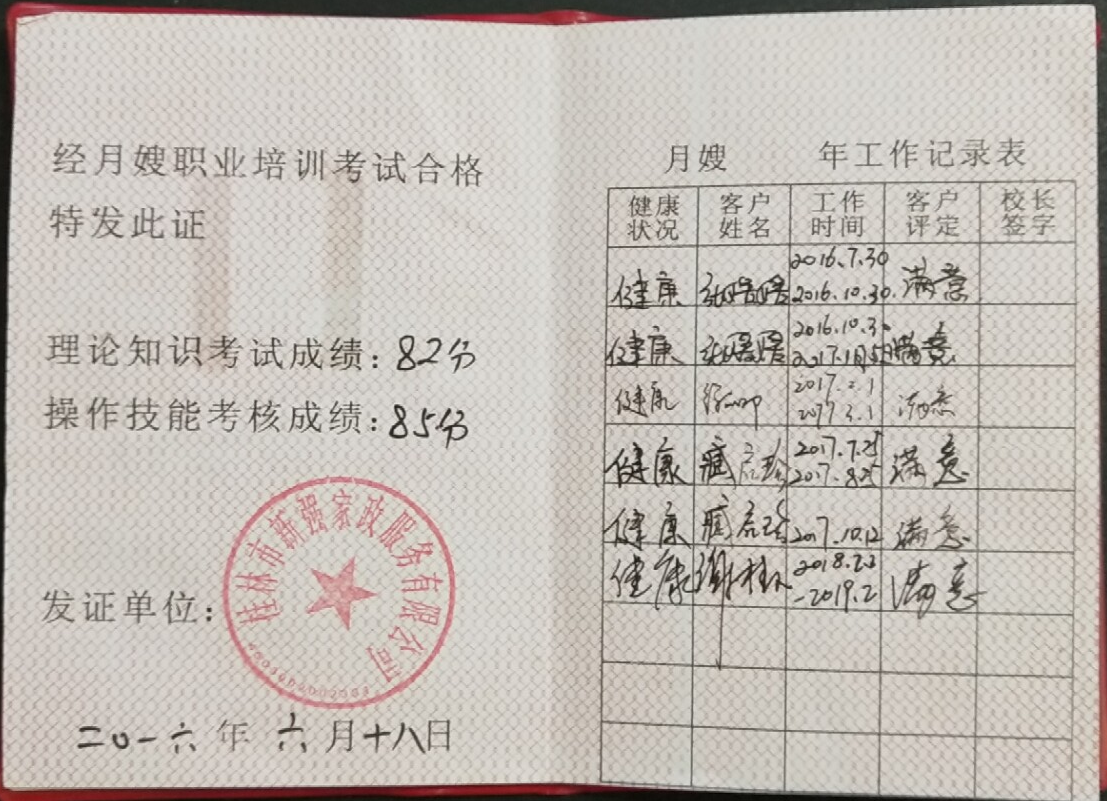 经月嫂职业培训考试合格
特发此证
理论知识考试成绩：82分
操作技能考核成绩：85分
发证单位：
桂林市新强家政服务有限公司
二〇一六年六月十八日
月嫂 年工作记录表
健康状况 客户姓名 工作时间 客户评定 校长签字
健康 2016.7.30 2016.10.30. 满意
健康 2016.10.30 满意
健康 2017.2.1 满意
健康 2017.7.25 2017.8.25 满意
健康 2017.10.12 满意
健康 谢桂 -2019.2 满意